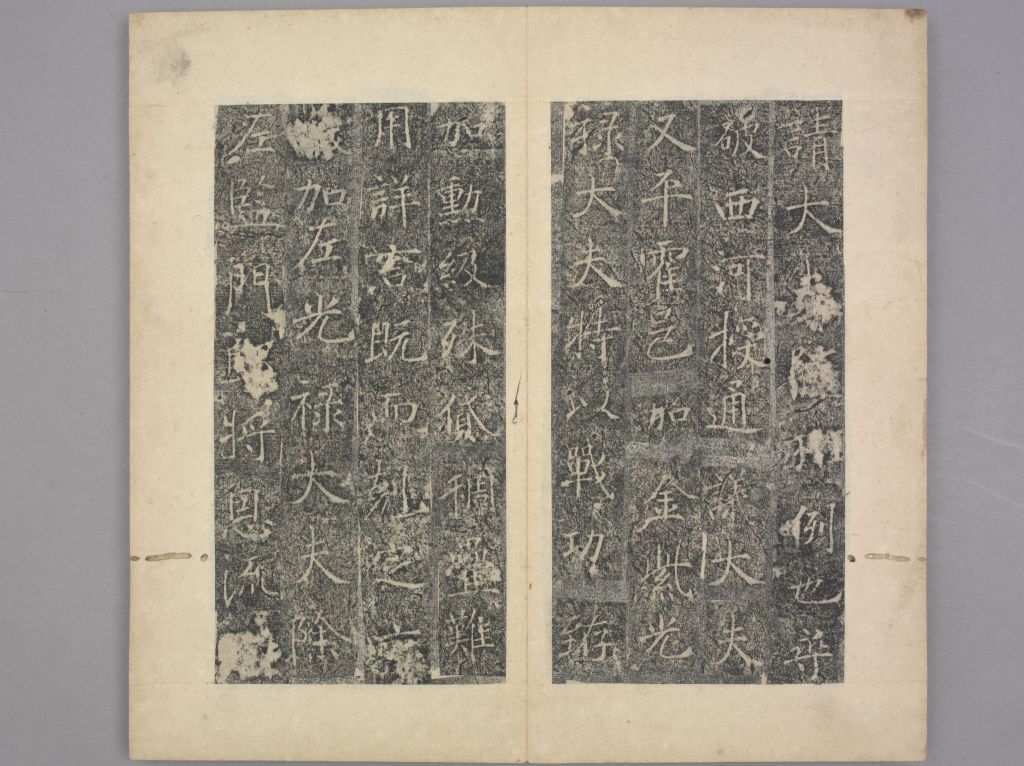 請大例也尋
破西河授通議大夫
又平霍邑加金紫光
祿大夫特以戰功
加勳級殊稠疊難
用詳言既而剋定京
加左光祿大夫除
左監門郎將恩流